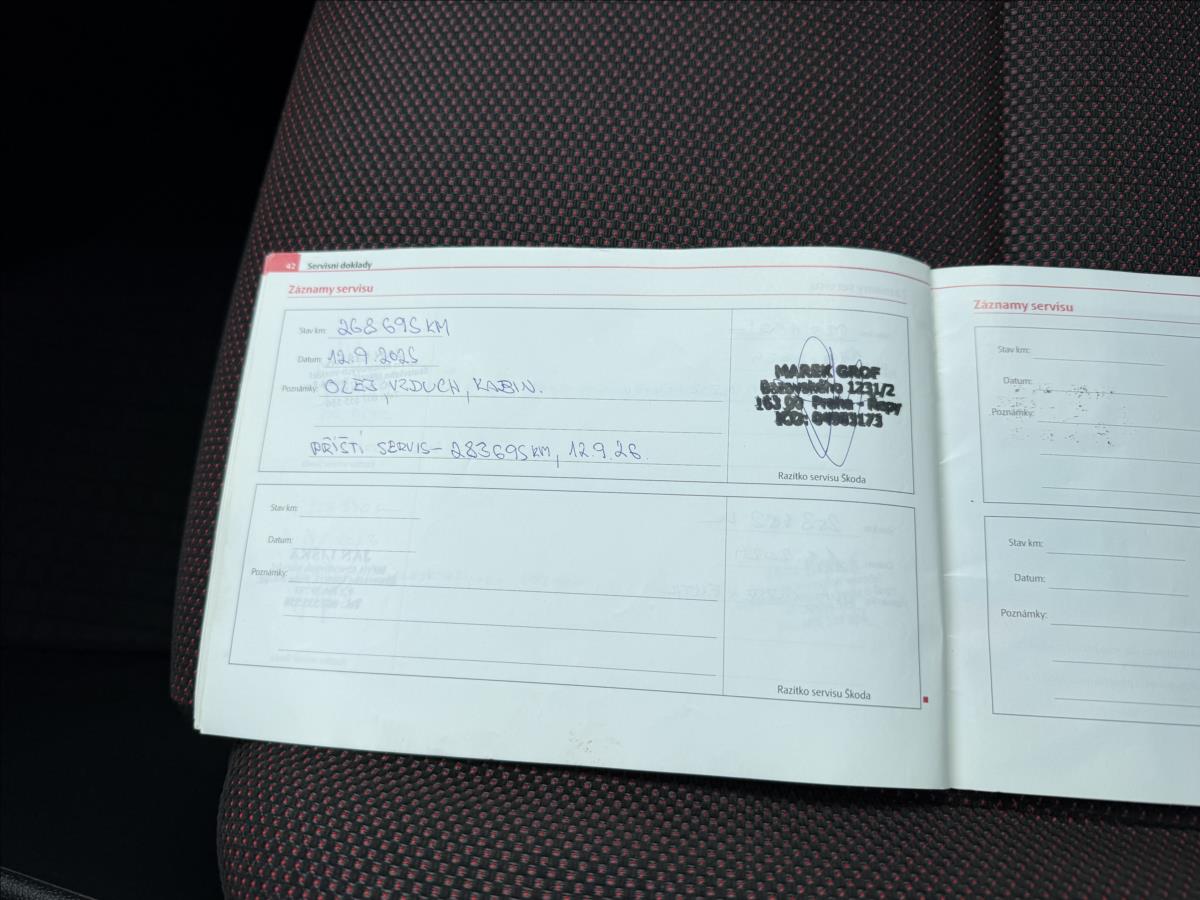 42 Servisní doklady
Záznamy servisu
Stav km: 268 695 KM
Datum: 12.9.2025
Poznámky: OLEJ, VZDUCH, KABIN.
PŘÍŠTÍ SERVIS - 283695KM, 12.9.26.
MAREK GROF
1231/2
163 00 Praha - Řepy
IČO:
Razítko servisu Škoda
Stav km:
Datum:
Poznámky:
Razítko servisu Škoda
Záznamy servisu
Stav km:
Datum:
Poznámky:
Stav km:
Datum:
Poznámky: